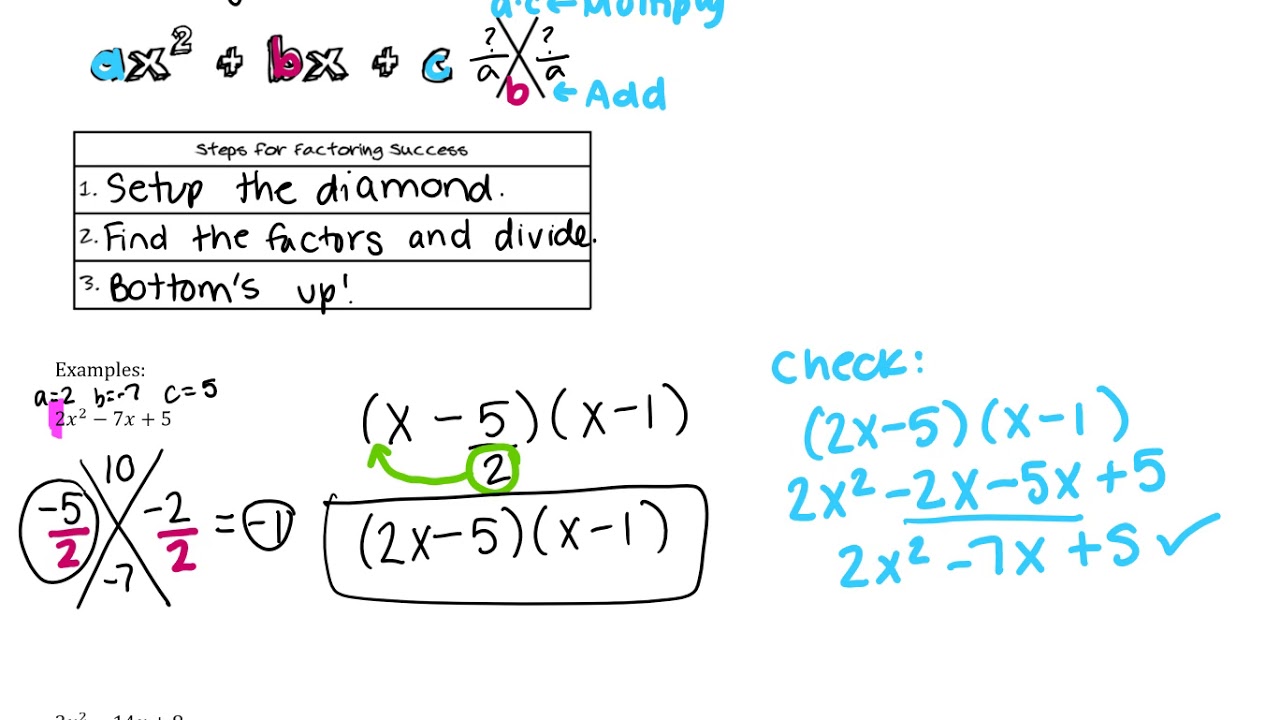 a·c ← Multiply
ax² + bx + c ? ?
a a
b ← Add
Steps for Factoring Success
1. Setup the diamond.
2. Find the factors and divide.
3. Bottom's up!
Examples:
a=2 b=-7 c=5
2x² − 7x + 5
10
-5/2 -2/2 = -1
-7
(x - 5/2)(x-1)
(2x-5)(x-1)
Check:
(2x-5)(x-1)
2x²-2x-5x+5
2x²-7x+5✓